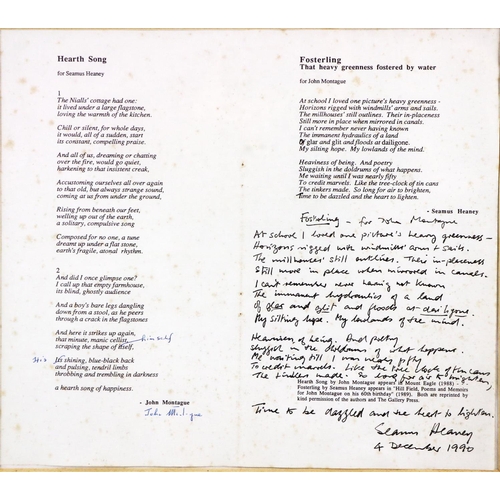 Hearth Song
for Seamus Heaney
1
The Nialls' cottage had one:
it lived under a large flagstone,
loving the warmth of the kitchen.
Chill or silent, for whole days,
it would, all of a sudden, start
its constant, compelling praise.
And all of us, dreaming or chatting
over the fire, would go quiet,
harkening to that insistent creak,
Accustoming ourselves all over again
to that old, but always strange sound,
coming at us from under the ground,
Rising from beneath our feet,
welling up out of the earth,
a solitary, compulsive song
Composed for no one, a tune
dreamed up under a flat stone,
earth's fragile, atonal rhythm.
2
And did I once glimpse one?
I call up that empty farmhouse,
its blind, ghostly audience
And a boy's bare legs dangling
down from a stool, as he peers
through a crack in the flagstones
And here it strikes up again,
that minute, manic cellist,
scraping the shape of itself, himself
Its shining, blue-black back
and pulsing, tendril limbs
throbbing and trembling in darkness
a hearth song of happiness.
- John Montague
John Montague
Fosterling
That heavy greenness fostered by water
for John Montague
At school I loved one picture's heavy greenness -
Horizons rigged with windmills' arms and sails.
The millhouses' still outlines. Their in-placeness
Still more in place when mirrored in canals.
I can't remember never having known
The immanent hydraulics of a land
Of glar and glit and floods at dailigone.
My silting hope. My lowlands of the mind.
Heaviness of being. And poetry
Sluggish in the doldrums of what happens.
Me waiting until I was nearly fifty
To credit marvels. Like the tree-clock of tin cans
The tinkers made. So long for air to brighten,
Time to be dazzled and the heart to lighten.
- Seamus Heaney
Fosterling - for John Montague
At school I loved one picture's heavy greenness -
Horizons rigged with windmills' arms & sails.
The millhouses' still outlines. Their in-placeness
Still more in place when mirrored in canals.
I can't remember never having not known
The immanent hydraulics of a land
Of glar and glit and floods at dailigone.
My silting hope. My lowlands of the mind.
Heaviness of being. And poetry
Sluggish in the doldrums of what happens.
Me waiting till I was nearly fifty
To credit marvels. Like the tree clock of tin cans
The tinkers made. So long for air to brighten,
Hearth Song by John Montague appears in Mount Eagle (1988) -
Fosterling by Seamus Heaney appears in "Hill Field, Poems and Memoirs
for John Montague on his 60th birthday" (1989). Both are reprinted by
kind permission of the authors and The Gallery Press.
Time to be dazzled and the heart to lighten.
Seamus Heaney
4 December 1990